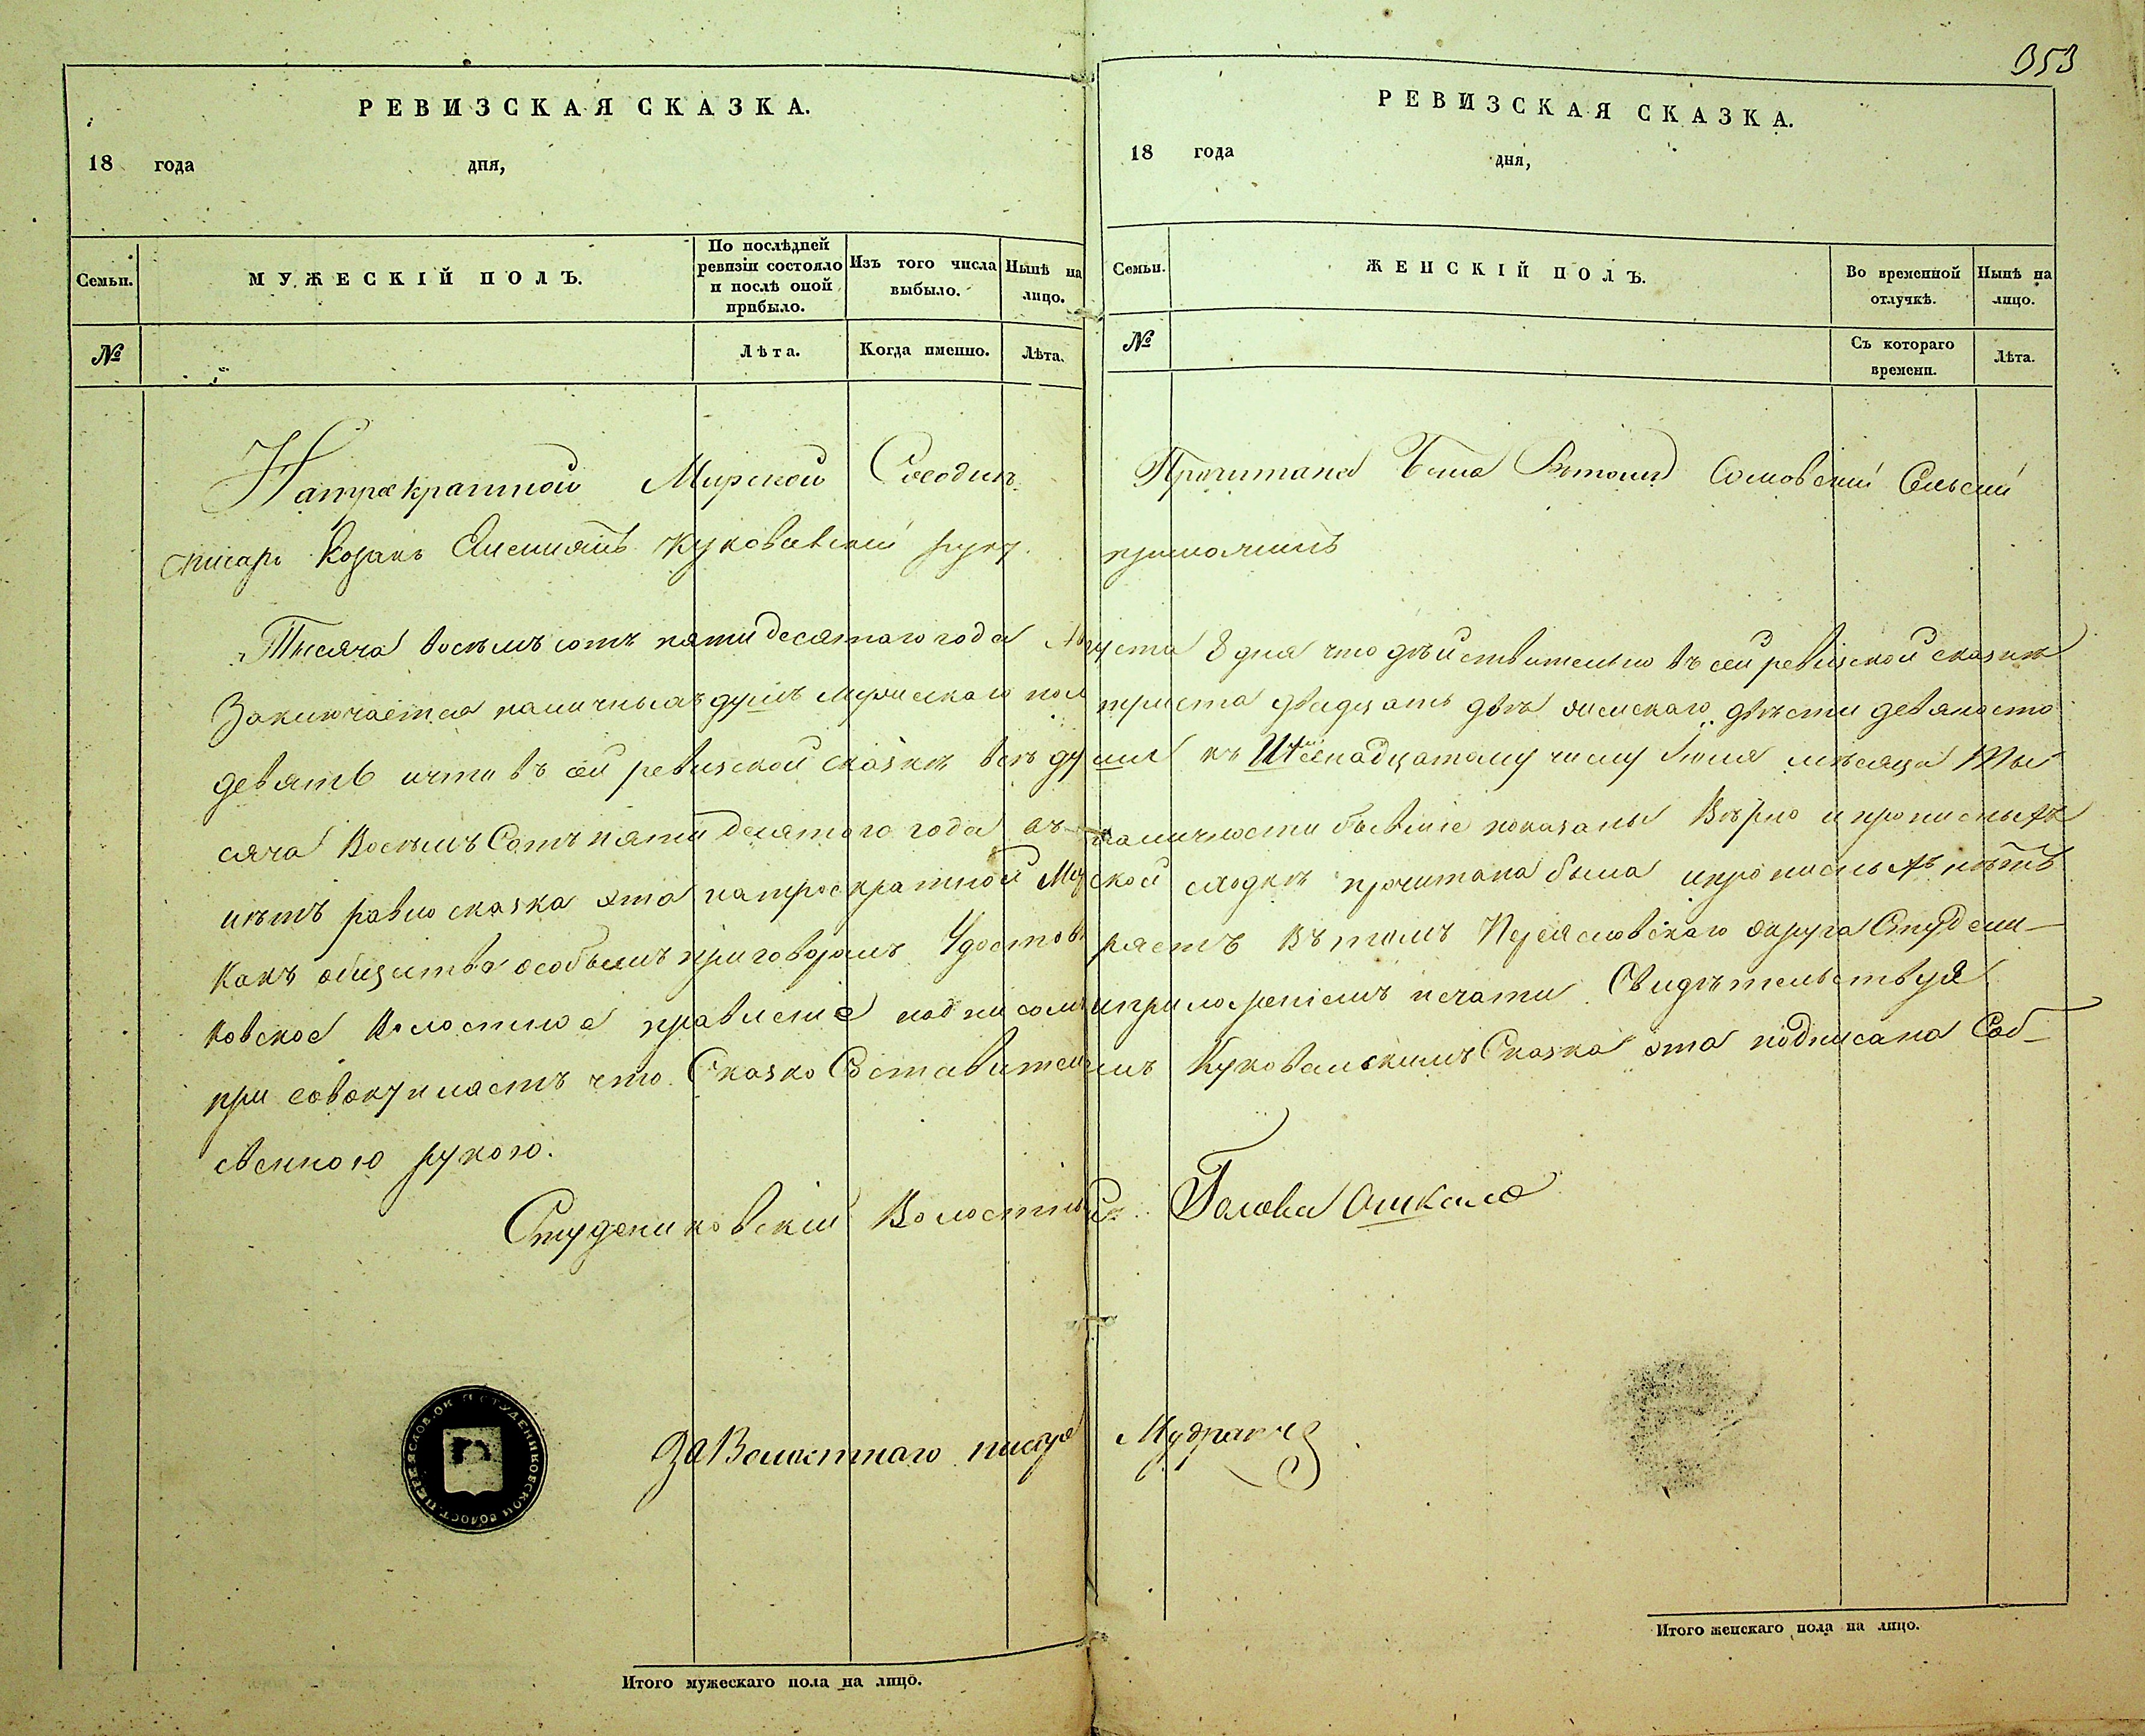 353
РЕВИЗСКАЯ СКАЗКА.
18 года дня,
Семьи.
МУЖЕСКІЙ ПОЛЪ.
По послѣдней ревизіи состояло и послѣ оной прибыло.
Изъ того числа выбыло.
Нынѣ на лицо.
№
Лѣта.
Когда именно.
Лѣта.
РЕВИЗСКАЯ СКАЗКА.
18 года дня,
Семьи.
ЖЕНСКІЙ ПОЛЪ.
Во временной отлучкѣ.
Нынѣ на лицо.
№
Съ котораго времени.
Лѣта.
Натрекратной Мирской Прочитана была Сомовский Сельский
писарь Козакъ Куковальский руку приложилъ
Тысяча восемъ сотъ пятидесятаго года Августа 8 дня что дѣйствительно въ сей ревизской сказкѣ
Заключается наличныхъ душъ мужескаго пола триста двадцать двѣ женскаго двѣсти девяносто
девять и что въ сей ревизской сказкѣ всѣ души къ числу Июня мѣсяца Ты
сяча Восемъ Сотъ пяти десятого года въ наличности бывшие показаны Вѣрно и прописныхъ
нѣтъ равно сказка эта натроекратной Мирской сходкѣ прочитана была и прописныхъ нѣтъ
Какъ общество особымъ приговоромъ Удостовѣряетъ Въ томъ Переяславского округа Студени–
ковское Волостное правление подписомъ и приложениемъ печати Свидѣтельствуя
при что Сказка Составителемъ Куковальскимъ Сказка эта подписана Соб–
ственною рукою.
Студениковский Волостный Голова Ошкало
За Волостнаго писаря
ПЕРЕЯСЛОВ. ОК СТУДЕНИКОВСКОЙ ВОЛОСТ.
Итого мужескаго пола на лицо.
Итого женскаго пола на лицо.